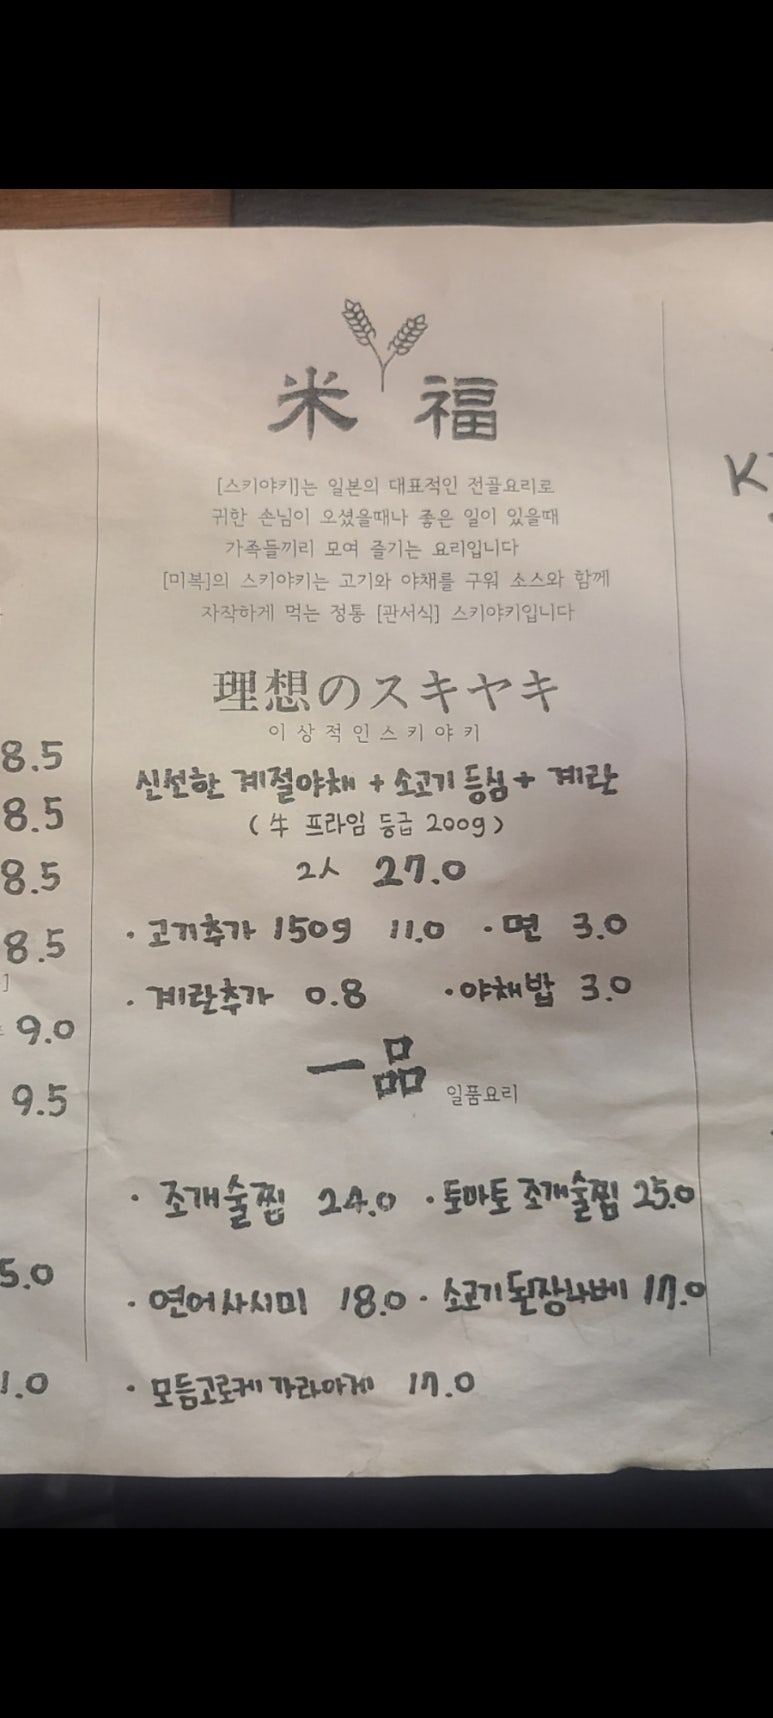 米福
[스키야키]는 일본의 대표적인 전골요리로
귀한 손님이 오셨을때나 좋은 일이 있을때
가족들끼리 모여 즐기는 요리입니다
[미복]의 스키야키는 고기와 야채를 구워 소스와 함께
자작하게 먹는 정통 [관서식] 스키야키입니다
理想のスキヤキ
이상적인스키야키
신선한 계절야채 + 소고기 등심 + 계란
(牛 프라임 등급 200g)
2人 27.0
· 고기추가 150g 11.0 · 면 3.0
· 계란추가 0.8 · 야채밥 3.0
一品 일품요리
· 조개술찜 24.0 · 토마토 조개술찜 25.0
· 연어사시미 18.0 · 소고기 된장나베 17.0
· 모듬고로케 가라아게 17.0
8.5
8.5
8.5
8.5
]
9.0
9.5
5.0
1.0
K